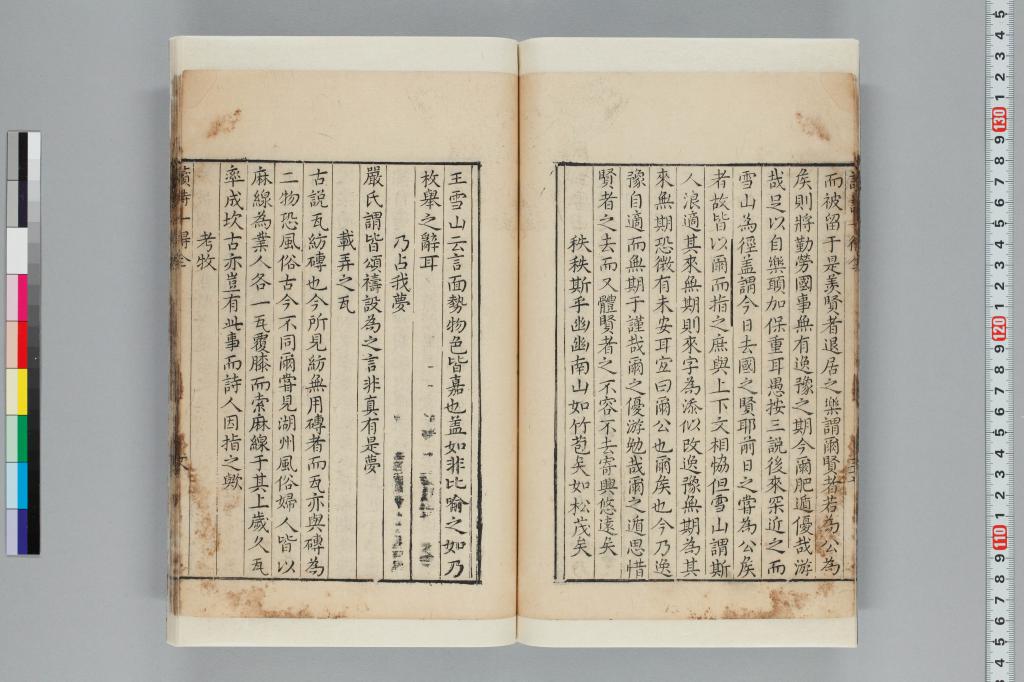 而被留于是羨賢者退居之樂謂爾賢者若為公為
矦則將勤勞國事無有逸豫之期今爾肥遁優哉游
哉足以自樂頤加保重耳愚按三説後來罙近之而
雪山為徑盖謂今日去國之賢耶前日之嘗為公矦
者故皆以爾而指之庶與上下文相恊但雪山謂斯
人浪適其來無期則來字為添似改逸豫無期為其
來無期恐微有未安耳宜曰爾公也爾矦也今乃逸
豫自適而無期于謹哉爾之優游勉哉爾之遁思惜
賢者之去而又體賢者之不容不去寄興悠遠矣
秩秩斯乎幽幽南山如竹苞矣如松茂矣
王雪山云言面勢物色皆嘉也盖如非比喻之如乃
枚舉之辭耳
乃占我夢
嚴氏謂皆頌禱設為之言非真有是夢
載弄之瓦
古説瓦紡磚也今所見紡無用磚者而瓦亦與磚為
二物恐風俗古今不同爾嘗見湖州風俗婦人皆以
麻線為業人各一瓦覆膝而索麻線于其上歲久瓦
率成坎古亦豈有此事而詩人因指之歟
考牧
讀詩一得全